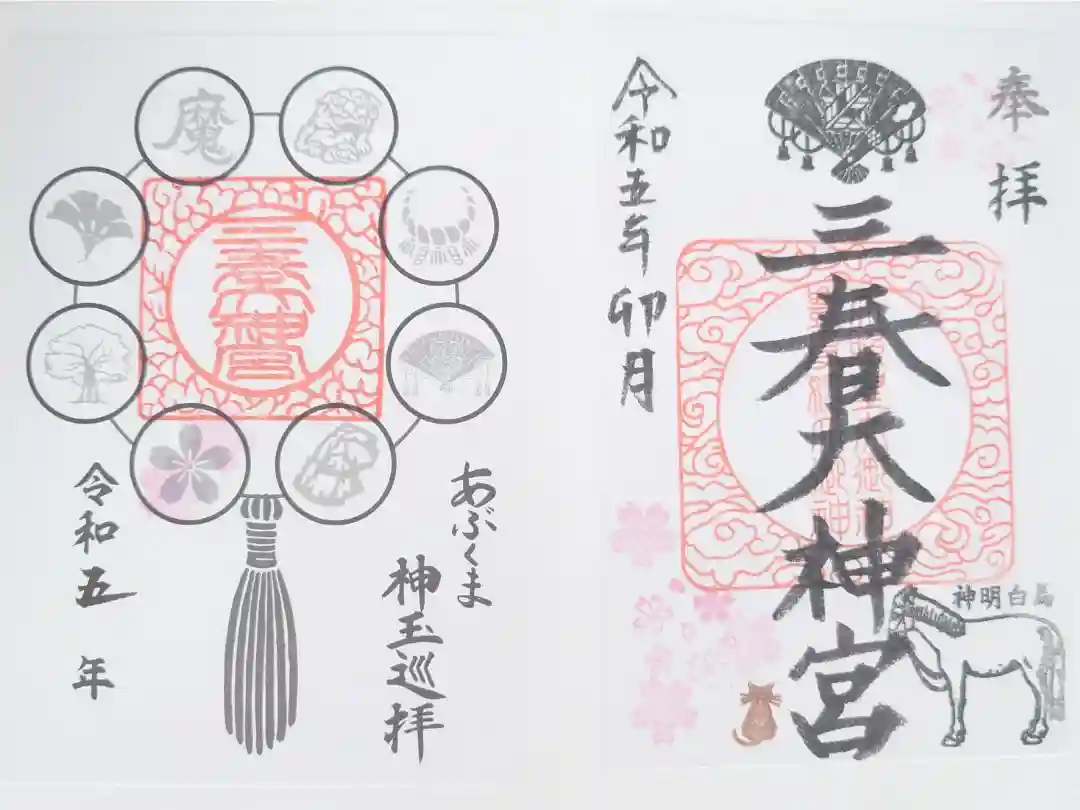 魔
三春大神宮
あぶくま
神玉巡拝
令和五年
奉拝
三春大神宮
令和五年 卯月
神明白馬